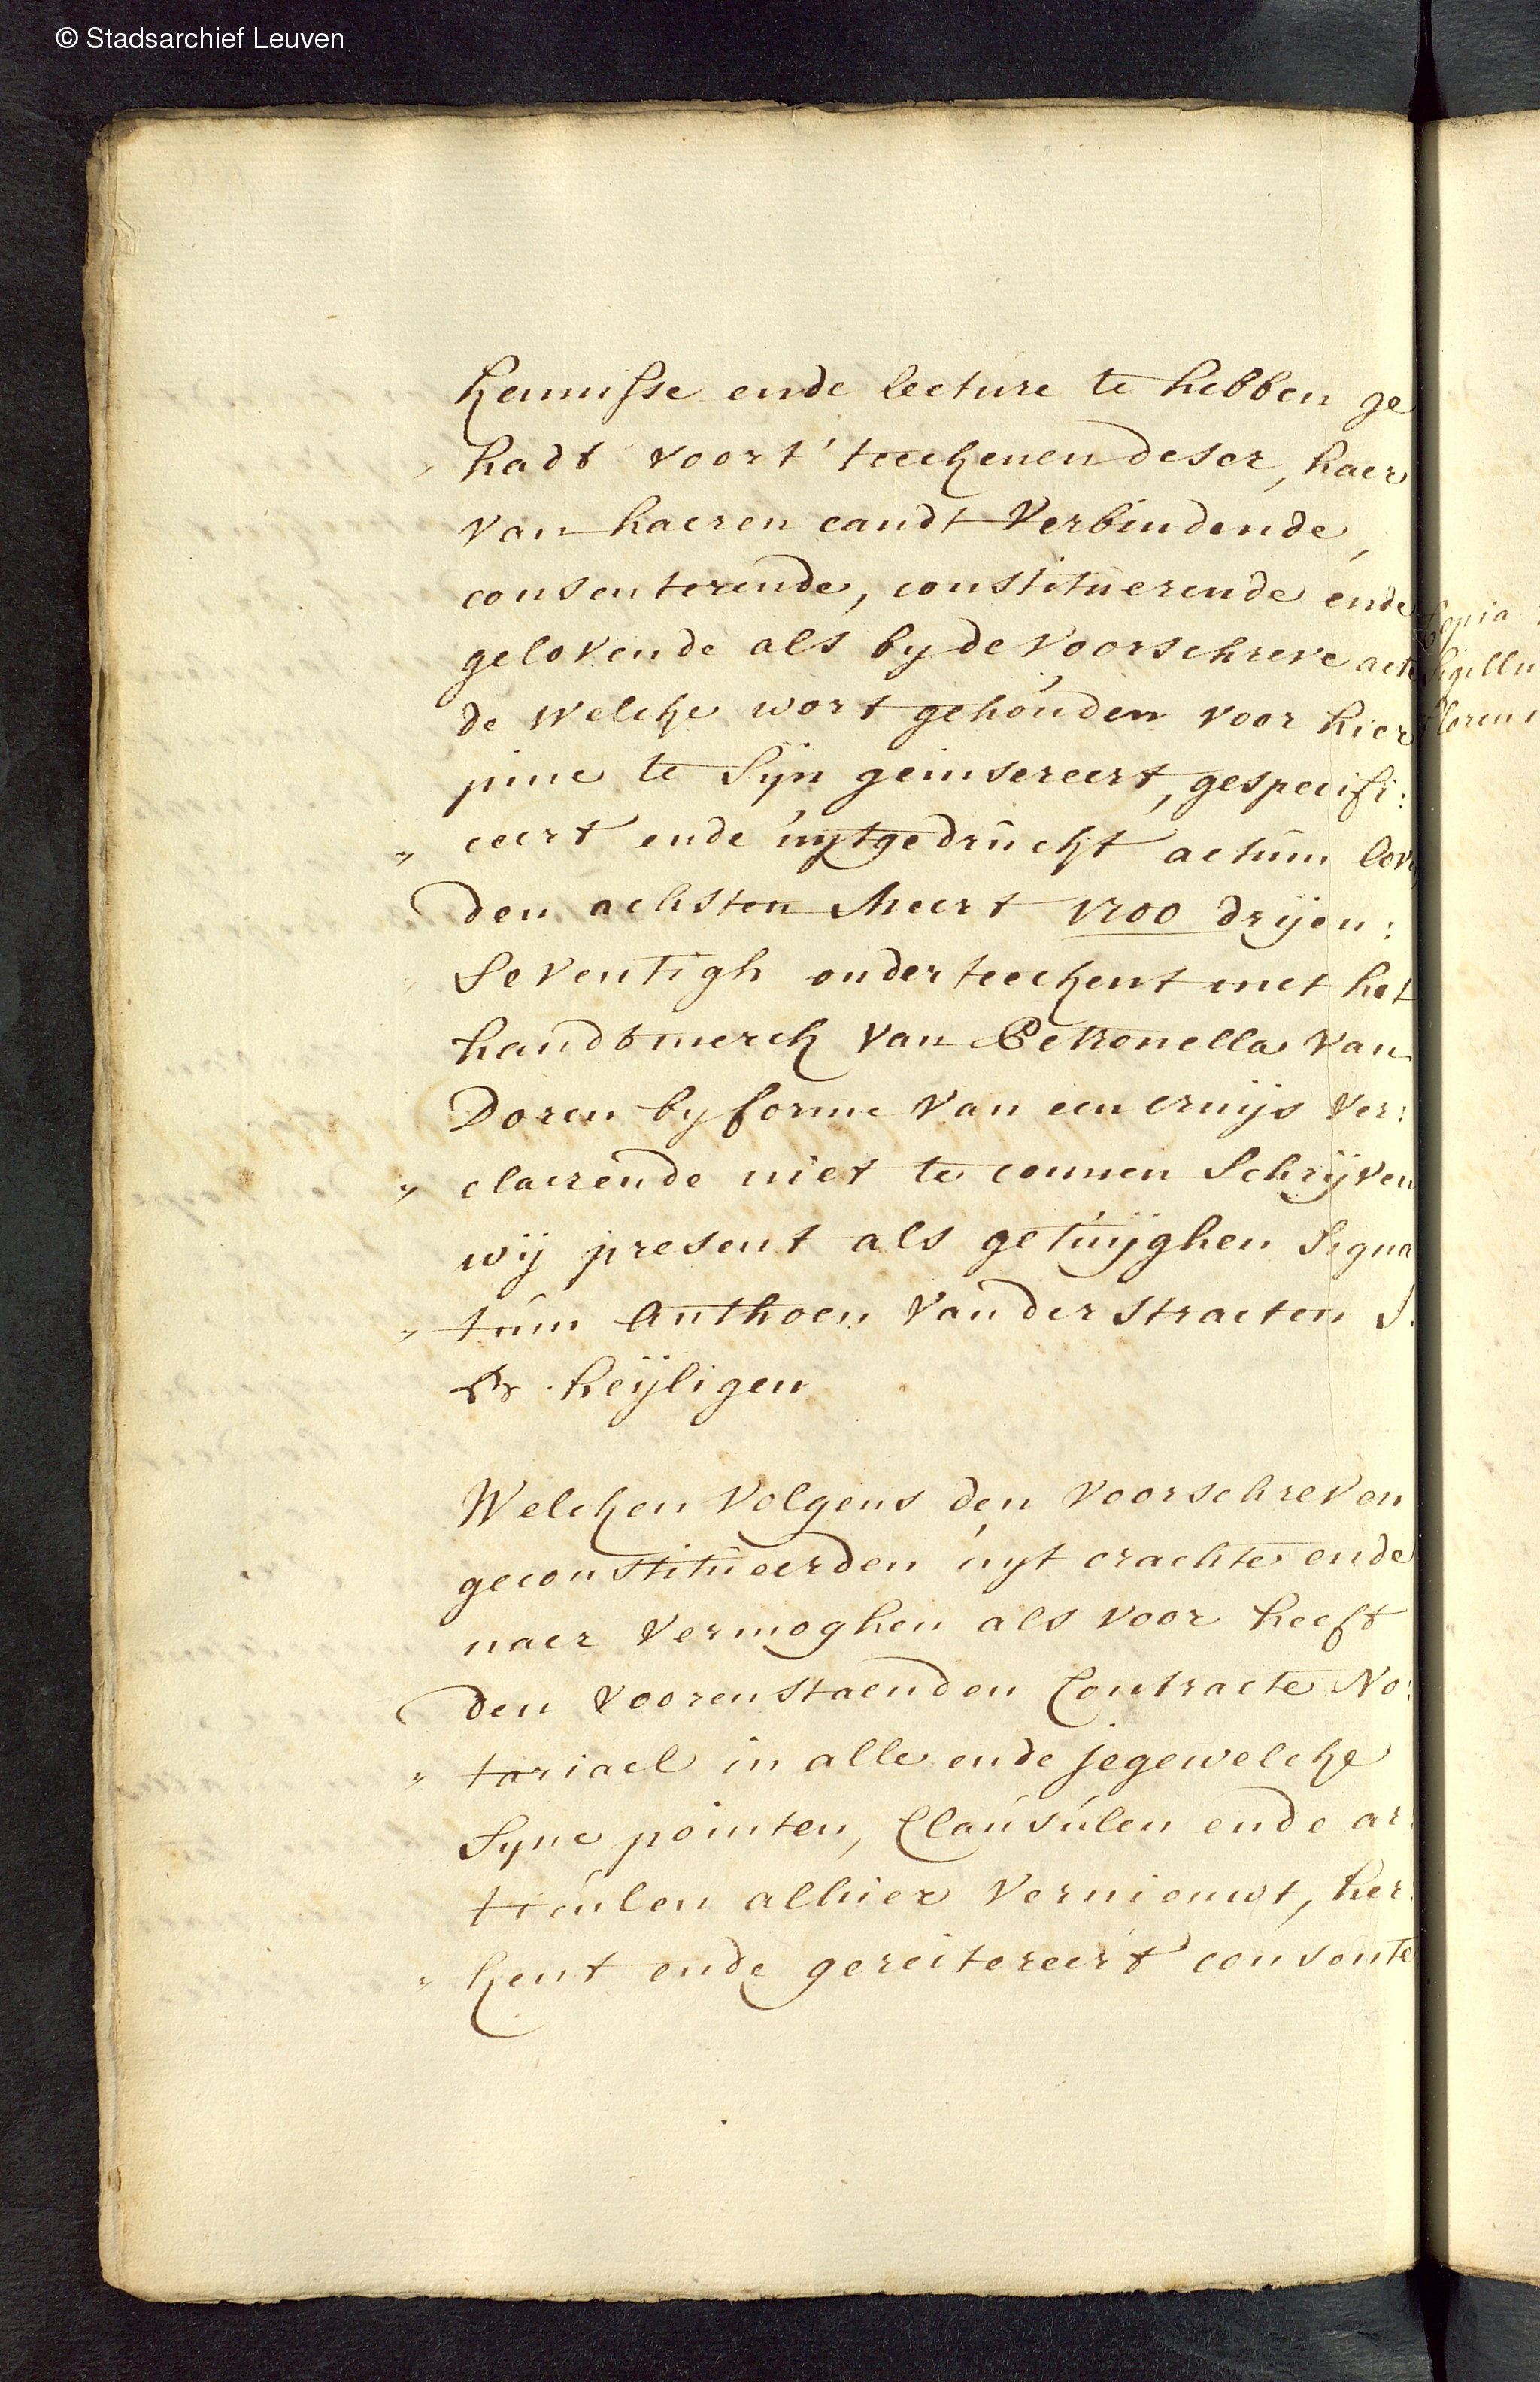 © Stadsarchief Leuven
kennisse ende lecture te hebben ge
hadt voor t' teeckenen deser, haer
van haeren candt verbindende,
consenterende, constituerende ende
gelovende als by de voorschreve acte
de welcke wort gehouden voor hier
inne te sijn geinsereert, gespecifi:
ceert ende uytgedruckt actum lov
den achsten Meert 1700 drijen:
seventigh onderteeckent met het
handtmerck van Petronella van
Doren by forme van een cruijs ver:
claerende niet te connen schrijven
wij present als getuijghen signa
tum Anthoen vander straeten J.
heijligen
Welcken volgens den voorschreven
geconstitueerden uyt crachte ende
naer vermoghen als voor heeft
den voorenstaenden Contracte No:
tariael in alle ende jegewelcke
syne pointen, Clausulen ende ar:
ticulen alhier vernieuwt, her:
kent ende gereitereert consente
Copia
sigillu